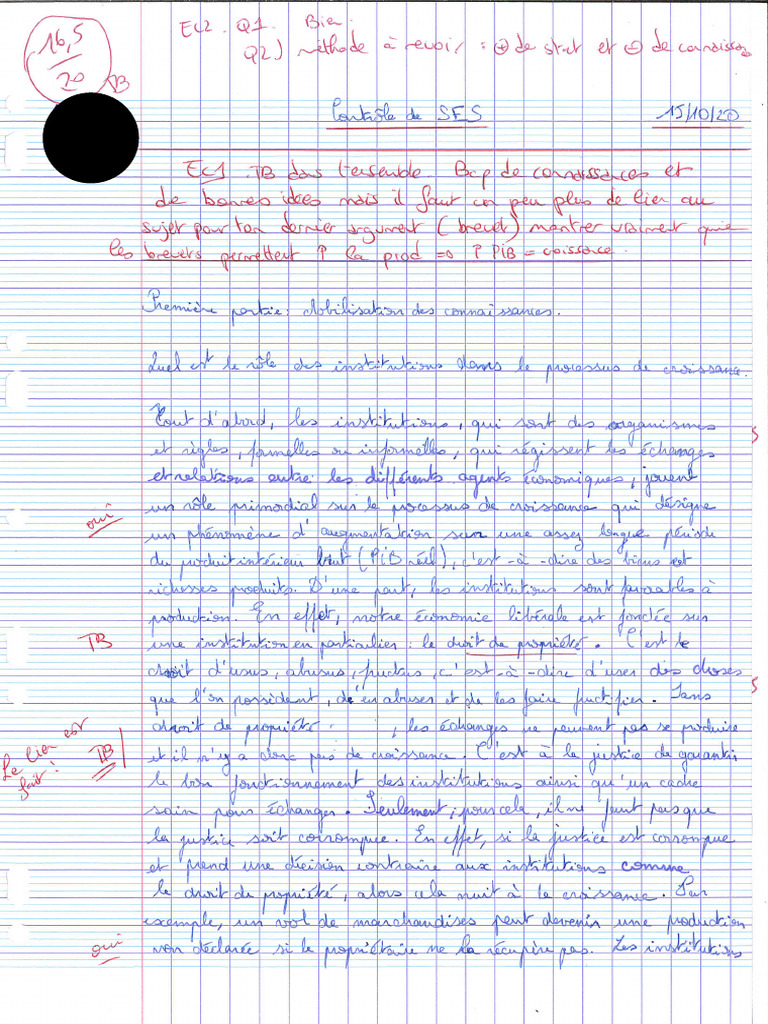 16,5
20
TB
EC2. Q1. Bien.
Q2) méthode à revoir : ⊕ de stat et ⊖ de connaissances
Contrôle de SES
15/10/20
EC1 TB dans l'ensemble. Bcp de connaissances et
de bonnes idées mais il faut un peu plus de lien au
sujet pour ton dernier argument (brevet) montrer vraiment que
les brevets permettent ↑ la prod => ↑ PiB = croissance.
Première partie : Mobilisation des connaissances.
Quel est le rôle des institutions dans le processus de croissance.
Tout d'abord, les institutions, qui sont des organismes
et règles, formelles ou informelles, qui régissent les échanges
et relations entre les différents agents économiques, jouent
un rôle primordial sur le processus de croissance qui désigne
oui
un phénomène d'augmentation sur une assez longue période
du produit intérieur brut (PiB réel), c'est-à-dire des biens et
richesses produits. D'une part, les institutions sont favorables à
production. En effet, notre économie libérale est fondée sur
TB
une institution en particulier : le droit de propriété. C'est le
droit d'usus, abusus, fructus, c'est-à-dire d'user des choses
que l'on possident, d'en abuser et de les faire fructifier. Sans
droit de propriété , les échanges ne peuvent pas se produire
Le lien est
fait !
TB
et il n'y a donc pas de croissance. C'est à la justice de garantir
le bon fonctionnement des institutions ainsi qu'un cadre
sain pour échanger. Seulement, pour cela, il ne faut pas que
la justice soit corrompue. En effet, si la justice est corrompue
et prend une décision contraire aux institutions comme
le droit de propriété, alors cela nuit à la croissance. Par
exemple, un vol de marchandises peut devenir une production
oui
non déclarée si le propriétaire ne la récupère pas. Les institutions